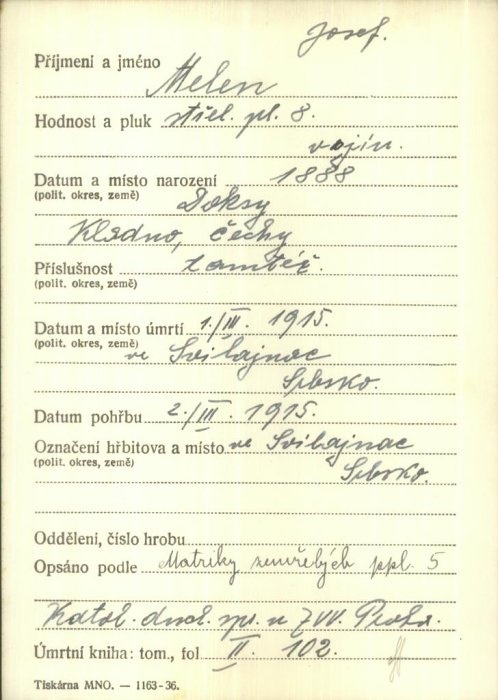 Josef.
Příjmení a jméno Melen
Hodnost a pluk střel. pl. 8.
vojín.
Datum a místo narození 1888
(polit. okres, země) Doksy
Kladno, Čechy
Příslušnost tamtéž.
(polit. okres, země)
Datum a místo úmrtí 1./III. 1915.
(polit. okres, země) ve Svilajnac
Srbsko.
Datum pohřbu 2./III. 1915.
Označení hřbitova a místo ve Svilajnac
(polit. okres, země) Srbsko.
Oddělení, číslo hrobu
Opsáno podle Matriky zemřelých ppl. 5
Katol. duch. spr. u ZVV. Praha.
Úmrtní kniha: tom., fol II. 102.
Tiskárna MNO. — 1163-36.